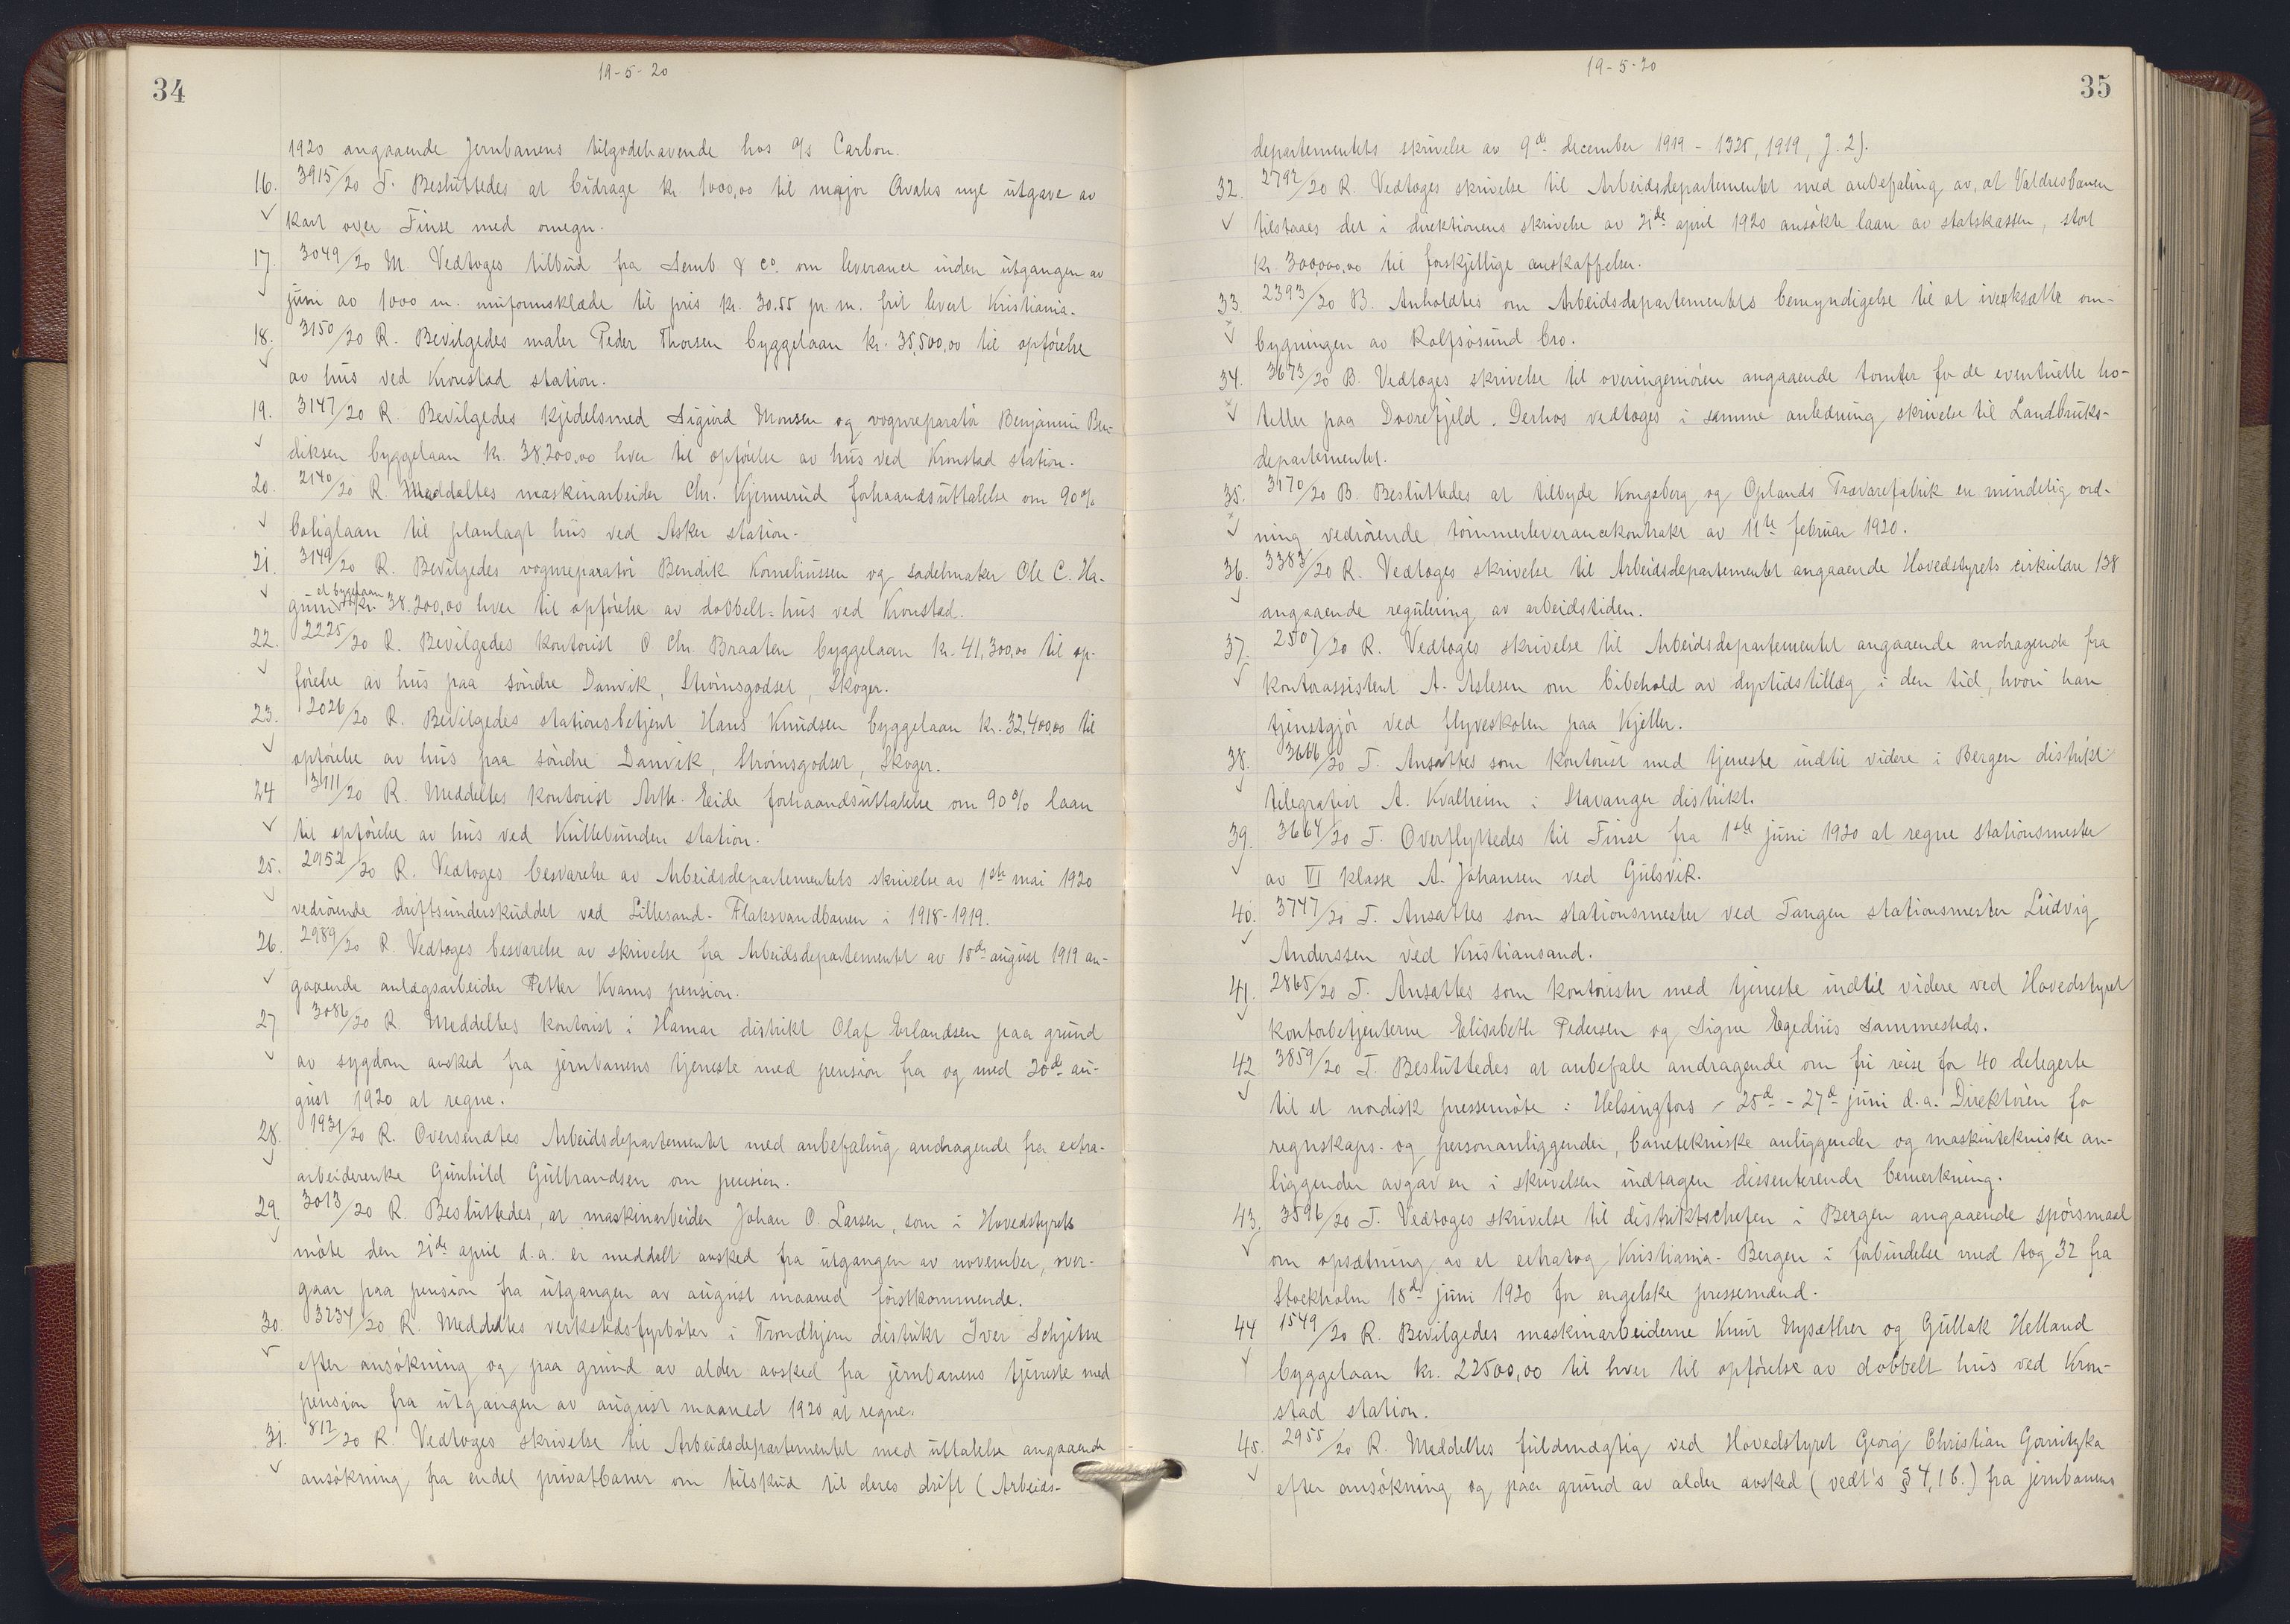 34
19-5-20
1920 angaaende Jernbanens tilgodehavende hos a/s Carbon.
16. 3915/20 T. Besluttedes at bidrage kr. 1000,00 til major Qvales nye utgave av
kart over Finse med omegn.
17. 3049/20 M. Vedtoges tilbud fra Semb & Co. om leverance inden utgangen av
juni av 1000 m. uniformsklæde til pris kr. 30.55 pr. m. frit levert Kristiania.
18. 3150/20 R. Bevilgedes maler Peder Thorsen byggelaan kr. 35,500,00 til opförelse
av hus ved Kronstad station.
19. 3147/20 R. Bevilgedes kjedelsmed Sigurd Monsen og vognreparatör Benjamin Ben-
diksen byggelaan kr. 38,200,00 hver til opförelse av hus ved Kronstad station.
20. 2140/20 R. Meddeltes maskinarbeider Chr. Kjennerud forhaandsuttalelse om 90%
boliglaan til planlagt hus ved Asker station.
21. 3149/20 R. Bevilgedes vognreparatör Bendik Korneliussen og sadelmaker Ole C. Ha-
gum et byggelaan kr. 38.200,00 hver til opförelse av dobbelt-hus ved Kronstad.
22. 2225/20 R. Bevilgedes kontorist O Chr. Braaten byggelaan kr. 41,300,00 til op-
förelse av hus paa söndre Danvik, Strömsgodset, Skoger.
23. 2026/20 R. Bevilgedes stationsbetjent Hans Knudsen byggelaan kr. 32,400,00 til
opförelse av hus paa söndre Danvik, Strömsgodset, Skoger.
24 3111/20 R. Meddeltes kontorist Arth. Eide forhaandsuttalelse om 90% laan
til opförelse av hus ved Kullebunden station.
25. 2952/20 R. Vedtoges besvarelse av Arbeidsdepartementets skrivelse av 1ste mai 1920
vedrörende driftsunderskuddet ved Lillesand-Flaksvandbanen i 1918-1919.
26. 2989/20 R. Vedtoges besvarelse av skrivelse fra Arbeidsdepartementet av 18de august 1919 an-
gaaende anlægsarbeider Petter Kvams pension.
27 3086/20 R. Meddeltes kontorist i Hamar distrikt Olaf Erlandsen paa grund
av sygdom avsked fra jernbanens tjeneste med pension fra og med 20de au-
gust 1920 at regne.
28. 1931/20 R. Oversendtes Arbeidsdepartementet med anbefaling andragende fra extra-
arbeiderenke Gunhild Gulbrandsen om pension.
29. 3013/20 R. Besluttedes, at maskinarbeider Johan O. Larsen, som i Hovedstyrets
möte den 21de april d.a. er meddelt avsked fra utgangen av november, over-
gaar paa pension fra utgangen av august maaned förstkommende.
30. 3234/20 R. Meddeltes verkstedsfyrböter i Trondhjem distrikt Iver Schjetne
efter ansökning og paa grund av alder avsked fra jernbanens tjeneste med
pension fra utgangen av august maaned 1920 at regne.
31. 812/20 R. Vedtoges skrivelse til Arbeidsdepartementet med uttalelse angaaende
ansökning fra endel privatbaner om tilskud til deres drift (Arbeids-
35
19-5-20
departementets skrivelse av 9de december 1919 - 1325, 1919, J. 2).
32. 2792/20 R. Vedtoges skrivelse til Arbeidsdepartementet med anbefaling av, at Valdresbanen
tilstaaes det i direktionens skrivelse av 21de april 1920 ansökte laan av statskassen, stort
kr. 300,000,00 til forskjellige anskaffelser.
33. 2393/20 B. Anholdtes om Arbeidsdepartementets bemyndigelse til at iverksætte om-
bygningen av Rolfsösund bro.
34. 3673/20 B. Vedtoges skrivelse til overingeniören angaaende tomter for de eventuelle ho-
teller paa Dovrefjeld. Derhos vedtoges i samme anledning skrivelse til Landbruks-
departementet.
35. 3170/20 B. Besluttedes at tilbyde Kongsberg og Oplands Trævarefabrik en mindelig ord-
ning vedrörende tömmerleverancekontrakt av 11te februar 1920.
36. 3383/20 R. Vedtoges skrivelse til Arbeidsdepartementet angaaende Hovedstyrets cirkulære 138
angaaende regulering av arbeidstiden.
37. 2507/20 R. Vedtoges skrivelse til Arbeidsdepartementet angaaende andragende fra
kontorassistent A. Aslesen om bibehold av dyrtidstillæg i den tid, hvori han
tjenstgjör ved flyveskolen paa Kjeller.
38. 3666/20 T. Ansattes som kontorist med tjeneste indtil videre i Bergen distrikt
telegrafist A. Kvalheim i Stavanger distrikt.
39. 3664/20 T. Overflyttedes til Finse fra 1ste juni 1920 at regne stationsmester
av VI klasse A. Johansen ved Gulsvik.
40. 3747/20 T. Ansattes som stationsmester ved Tangen stationsmester Ludvig
Anderssen ved Kristiansand.
41. 2865/20 T. Ansattes som kontorister med tjeneste indtil videre ved Hovedstyret
kontorbetjenterne Elisabeth Pedersen og Signe Egedius sammesteds.
42 3859/20 T. Besluttedes at anbefale andragende om fri reise for 40 delegerte
til et nordisk pressemöte i Helsingfors - 25de - 27de juni d.a. Direktören for
regnskaps- og personanliggender, banetekniske anliggender og maskintekniske an-
liggender avgav en i skrivelsen indtagen dissenterende bemerkning.
43. 3596/20 T. Vedtoges skrivelse til distriktschefen i Bergen angaaende spörsmaal
om opsætning av et extratog Kristiania-Bergen i forbindelse med tog 32 fra
Stockholm 18de juni 1920 for engelske pressemænd.
44 1549/20 R. Bevilgedes maskinarbeiderne Knut Nysæther og Gullak Helland
byggelaan kr. 22500,00 til hver til opförelse av dobbelt hus ved Kron-
stad station.
45. 2955/20 R. Meddeltes fuldmægtig ved Hovedstyret Georg Christian Gornitzka
efter ansökning og paa grund av alder avsked (vedt's § 4, 1 b.) fra jernbanens